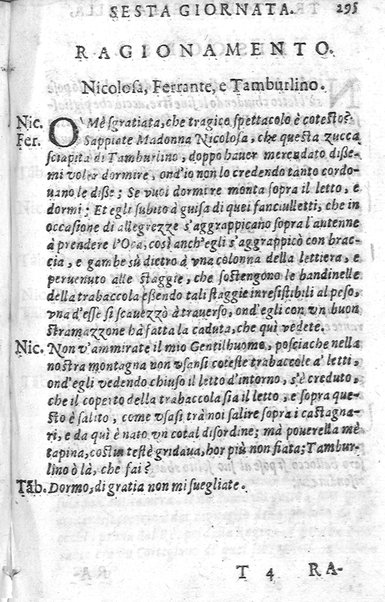 SESTA GIORNATA. 295
RAGIONAMENTO.
Nicolosa, Ferrante, e Tamburlino.
Nic. O' Mè sgratiata, che tragico spettacolo è cotesto?
Fer. Sappiate Madonna Nicolosa, che questa zucca
sciapita di Tamburlino, doppo hauer merendato disse
mi voler dormire, ond'io non lo credendo tanto cordo-
uano le disse; Se vuoi dormire monta sopra il letto, e
dormi: Et egli subito à guisa di quei fanciulletti, che in
occasione di allegrezze s'aggrappicano sopra l'autenne
à prendere l'Oca, così anch'egli s'aggrappicò con brac-
cia, e gambe sù dietro à vna colonna della lettiera, e
peruenuto alle staggie, che sostengono le bandinelle
della trabaccola essendo tali staggie irresistibili al peso,
vna d'esse si scauezzò à trauerso, ond'egli con vn buon
stramazzone hà fatta la caduta, che quì vedete.
Nic. Non v'ammirate il mio Gentilhuomo, posciache nella
nostra montagna non vsansi coteste trabaccole a' letti,
ond'egli vedendo chiuso il letto d'intorno, s'è creduto,
che il coperto della trabaccola sia il letto, e sopra que-
sto è salito, come vsasi trà noi salire sopra i castagna-
ri, e da quì è nato vn cotal disordine; ma pouerella mè
tapina, costui testè gridaua, hor più non fiata; Tambur-
lino ò là, che fai?
Tãb. Dormo, di gratia non mi suegliate.
T 4 RA-